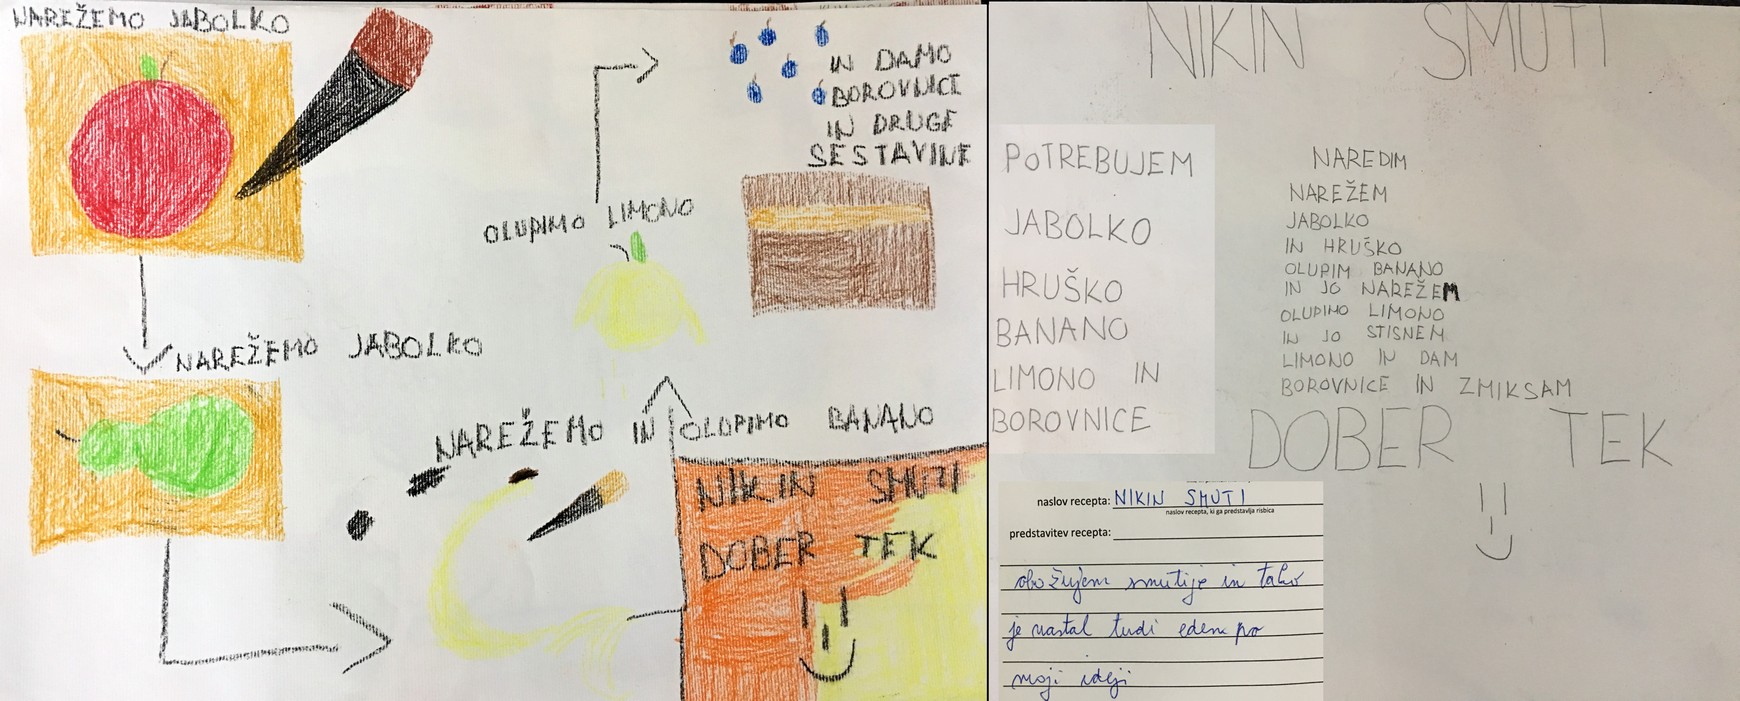 NAREŽEMO JABOLKO
NAREŽEMO JABOLKO
NAREŽEMO IN OLUPIMO BANANO
OLUPIMO LIMONO
IN DAMO
BOROVNICE
IN DRUGE
SESTAVINE
NIKIN SMUTI
DOBER TEK
NIKIN SMUTI
POTREBUJEM
JABOLKO
HRUŠKO
BANANO
LIMONO IN
BOROVNICE
NAREDIM
NAREŽEM
JABOLKO
IN HRUŠKO
OLUPIM BANANO
IN JO NAREŽEM
OLUPIMO LIMONO
IN JO STISNEM
LIMONO IN DAM
BOROVNICE IN ZMIKSAM
DOBER TEK
naslov recepta: NIKIN SMUTI
naslov recepta, ki ga predstavlja risbica
predstavitev recepta:
obožujem smutije in tako
je nastal tudi eden po
moji ideji